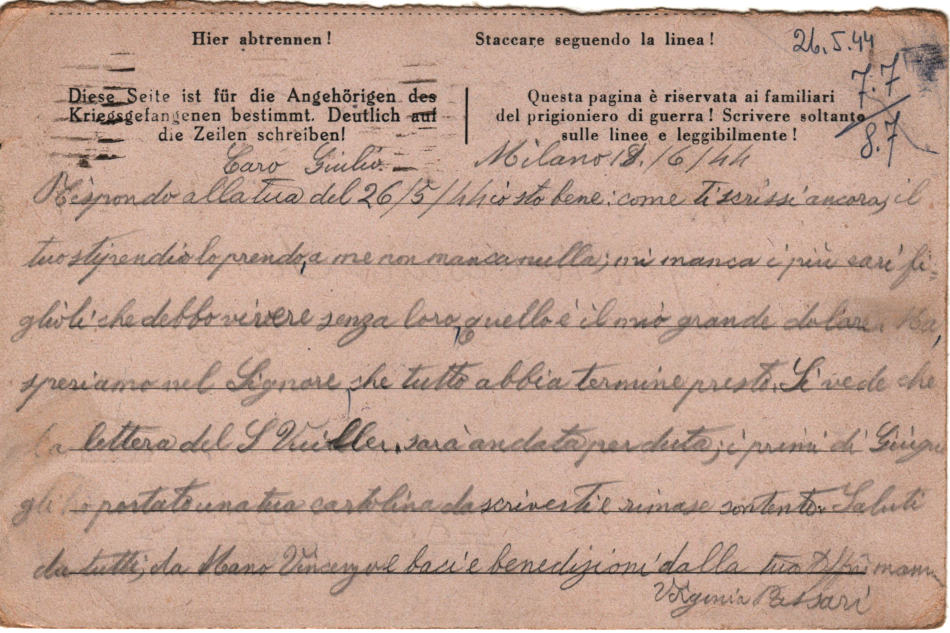 Hier abtrennen!
Staccare seguendo la linea!
26.5.44
7.7
8.7
Diese Seite ist für die Angehörigen des
Kriegsgefangenen bestimmt. Deutlich auf
die Zeilen schreiben!
Questa pagina è riservata ai familiari
del prigioniero di guerra! Scrivere soltanto
sulle linee e leggibilmente!
Caro Giulio. Milano 18./6/44
Rispondo alla tua del 26/5/44 io sto bene: come ti scrissi ancora, il
tuo stipendio lo prendo, a me non manca nulla; mi manca i più cari fi=
glioli che debbo vivere senza loro, quello è il mio grande dolore. Ma,
speriamo nel Signore, che tutto abbia termine presto. Si vede che
la lettera del S sarà andata perduta; i primi di Giugn
gli ho portato una tua cartolina da scriverti e rimase contento. Saluti
da tutti, da Vincenzo e baci e benedizioni dalla tua mamm
Virginia